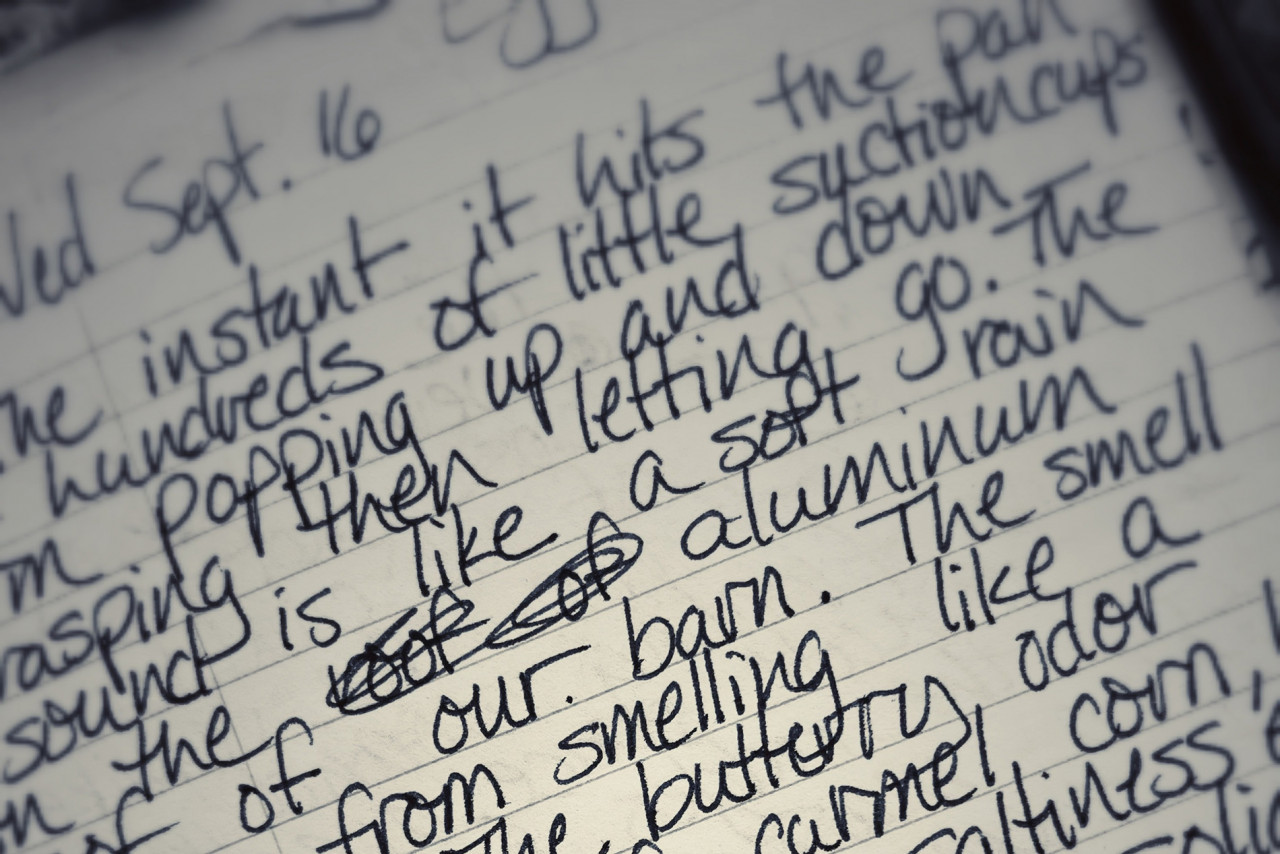 Wed Sept. 16
The instant it hits the pan
hundreds of little suctioncups
popping up and down
rasping then letting go. The
sound is like a soft rain
on the roof of aluminum
of our. barn. The smell
from smelling like a
the buttery odor
carmel corn,
saltiness